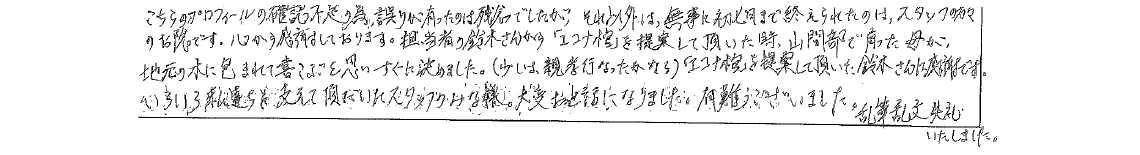 こちらのプロフィールの確認不足の為、誤りが有ったのは残念でしたが、それ以外は、無事に初七日まで終えられたのは、スタッフの方々
のお陰です。心から感謝しております。担当者の鈴木さんから「エコナ棺」を提案して頂いた時、山間部で育った母が、
地元の木に包まれて喜こぶと思いすぐに決めました。(少しは、親孝行なったかなぁ)「エコナ棺」を提案して頂いた鈴木さんに感謝です。
いろいろ私達を支えて頂だいたスタッフのみな様。大変お世話になりました。有難うございました。乱筆乱文失礼
いたしました。